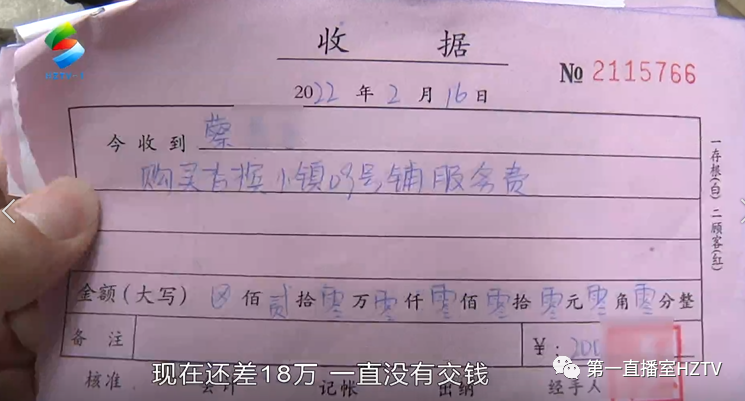 收 据
№ 2115766
2022 年 2 月 16 日
今 收 到 蔡
购买古摈小镇09号铺服务费
金额(大写) ⊗ 佰 贰 拾 零 万 零 仟 零 佰 零 拾 零 元 零 角 零 分 整
备 注
¥: 200
核准 会计 记帐 出纳 经手人
一存根(白) 二顾客(红)
现在还差18万 一直没有交钱
第一直播室HZTV